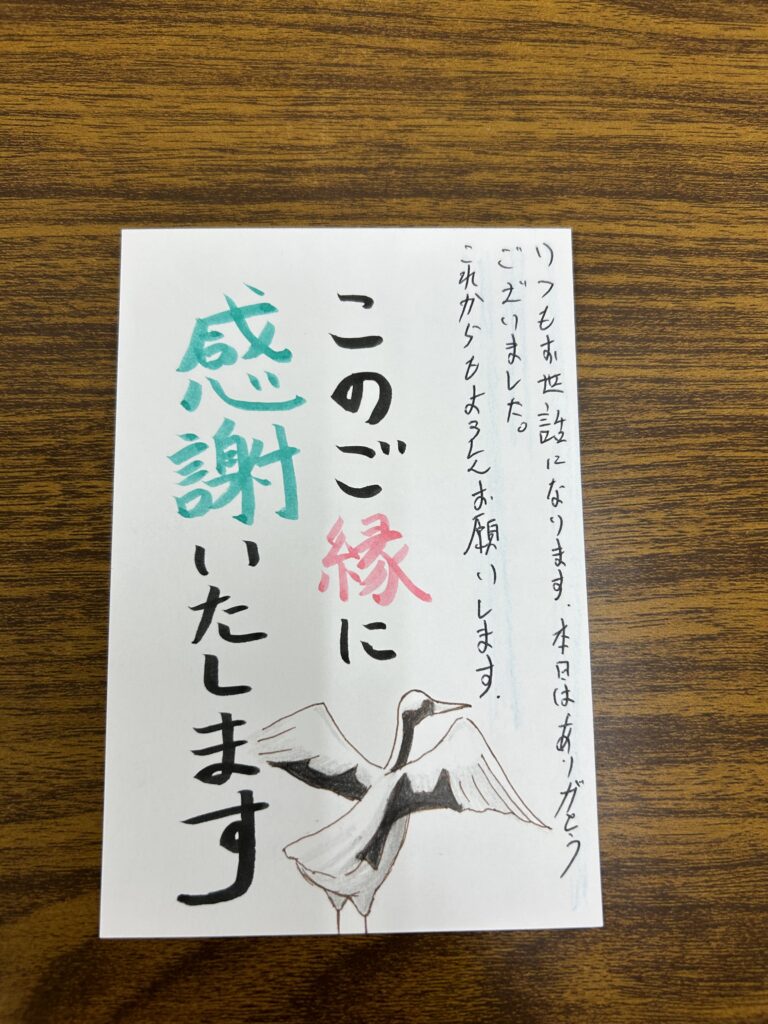 いつもお世話になります。本日はありがとう
ございました。
これからもよろしくお願いします。
このご縁に
感謝いたします